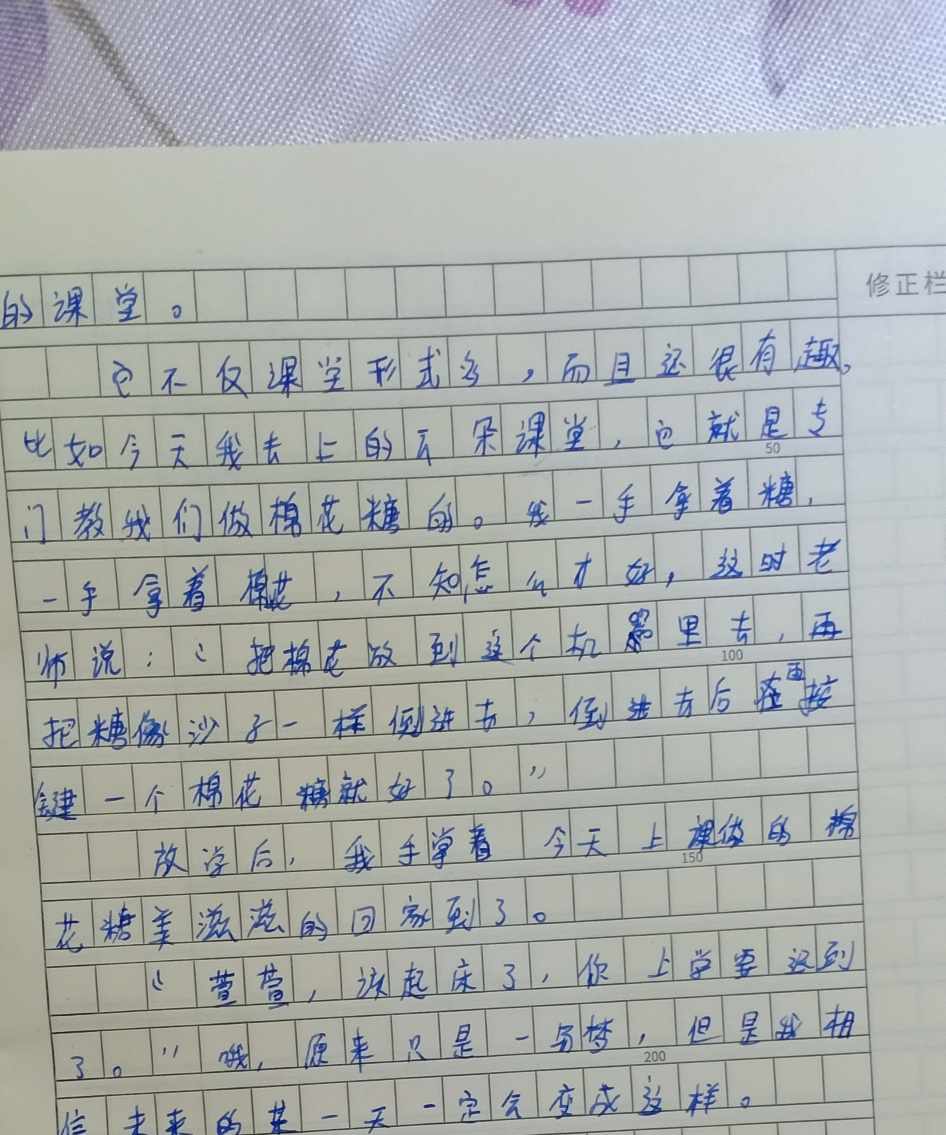 修正栏
的课堂。
它不仅课堂形式多，而且还很有趣。
比如今天我去上的云朵课堂，它就是专
50
门教我们做棉花糖的。我一手拿着糖，
一手拿着棉花，不知怎么才好，这时老
师说：“把棉花放到这个机器里去，再
100
把糖像沙子一样倒进去，倒进去后再按
键一个棉花糖就好了。”
放学后，我手拿着今天上课做的棉
150
花糖美滋滋的回家到了。
“萱萱，该起床了，你上学要迟到
了。”哦，原来只是一场梦，但是我相
200
信未来的某一天一定会变成这样。